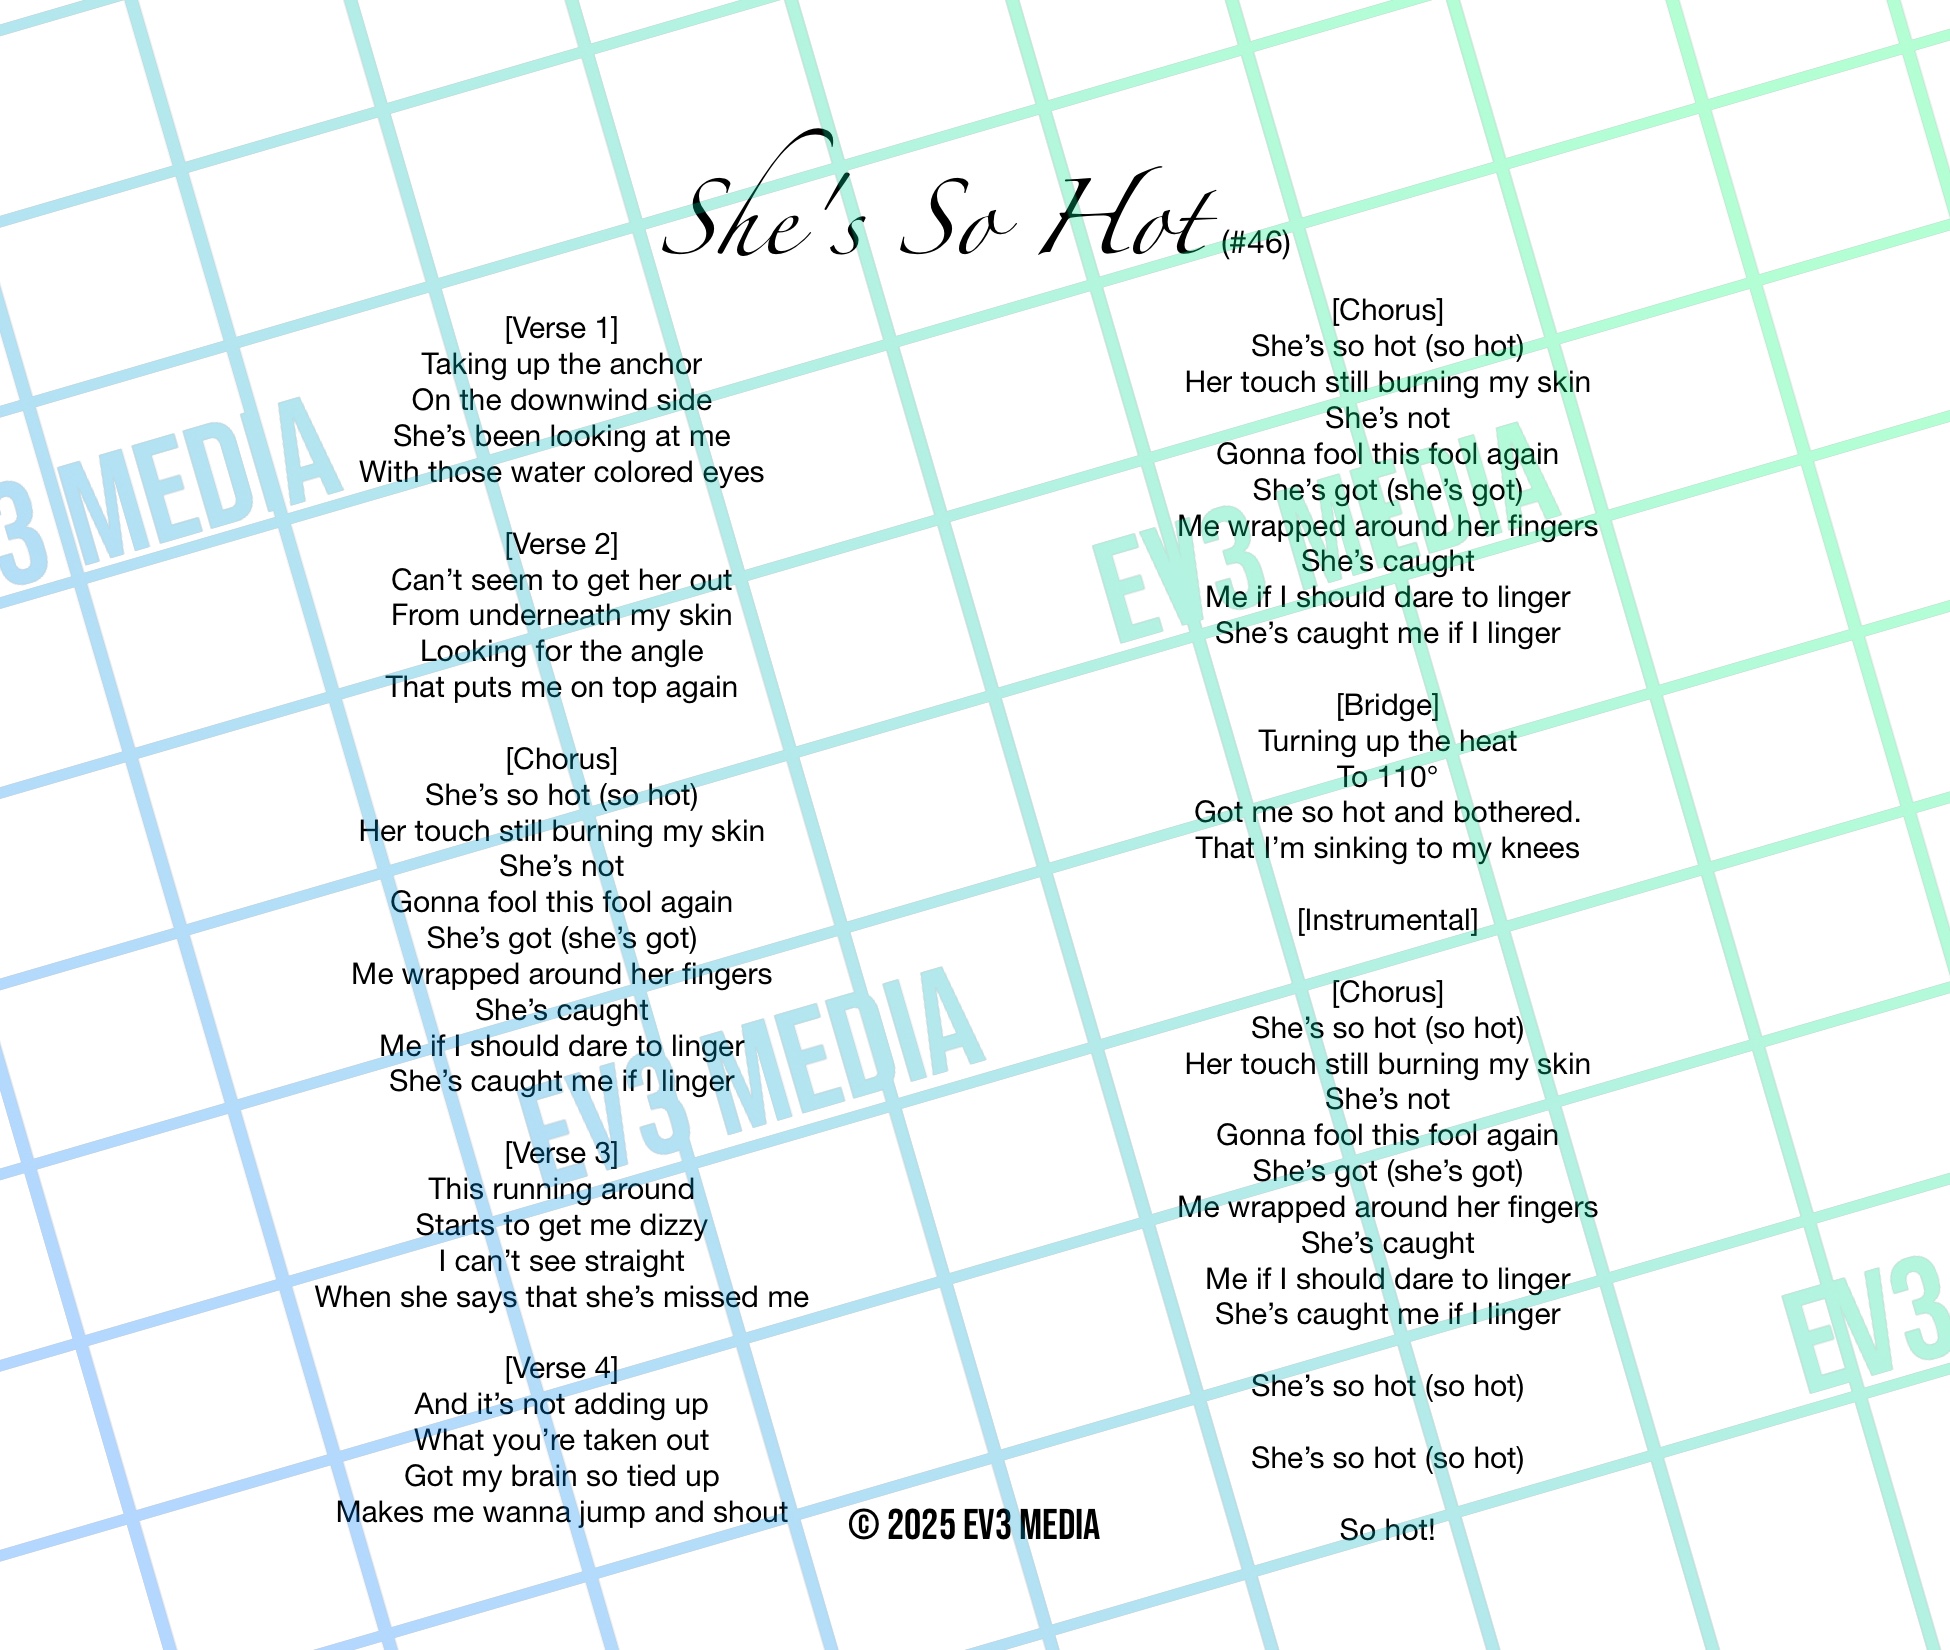 She's So Hot (#46)
[Verse 1]
Taking up the anchor
On the downwind side
She’s been looking at me
With those water colored eyes
[Verse 2]
Can’t seem to get her out
From underneath my skin
Looking for the angle
That puts me on top again
[Chorus]
She’s so hot (so hot)
Her touch still burning my skin
She’s not
Gonna fool this fool again
She’s got (she’s got)
Me wrapped around her fingers
She’s caught
Me if I should dare to linger
She’s caught me if I linger
[Verse 3]
This running around
Starts to get me dizzy
I can’t see straight
When she says that she’s missed me
[Verse 4]
And it’s not adding up
What you’re taken out
Got my brain so tied up
Makes me wanna jump and shout
[Chorus]
She’s so hot (so hot)
Her touch still burning my skin
She’s not
Gonna fool this fool again
She’s got (she’s got)
Me wrapped around her fingers
She’s caught
Me if I should dare to linger
She’s caught me if I linger
[Bridge]
Turning up the heat
To 110°
Got me so hot and bothered.
That I’m sinking to my knees
[Instrumental]
[Chorus]
She’s so hot (so hot)
Her touch still burning my skin
She’s not
Gonna fool this fool again
She’s got (she’s got)
Me wrapped around her fingers
She’s caught
Me if I should dare to linger
She’s caught me if I linger
She’s so hot (so hot)
She’s so hot (so hot)
So hot!
© 2025 EV3 MEDIA
3 MEDIA
EV3 MEDIA
EV3 MEDIA
EV3